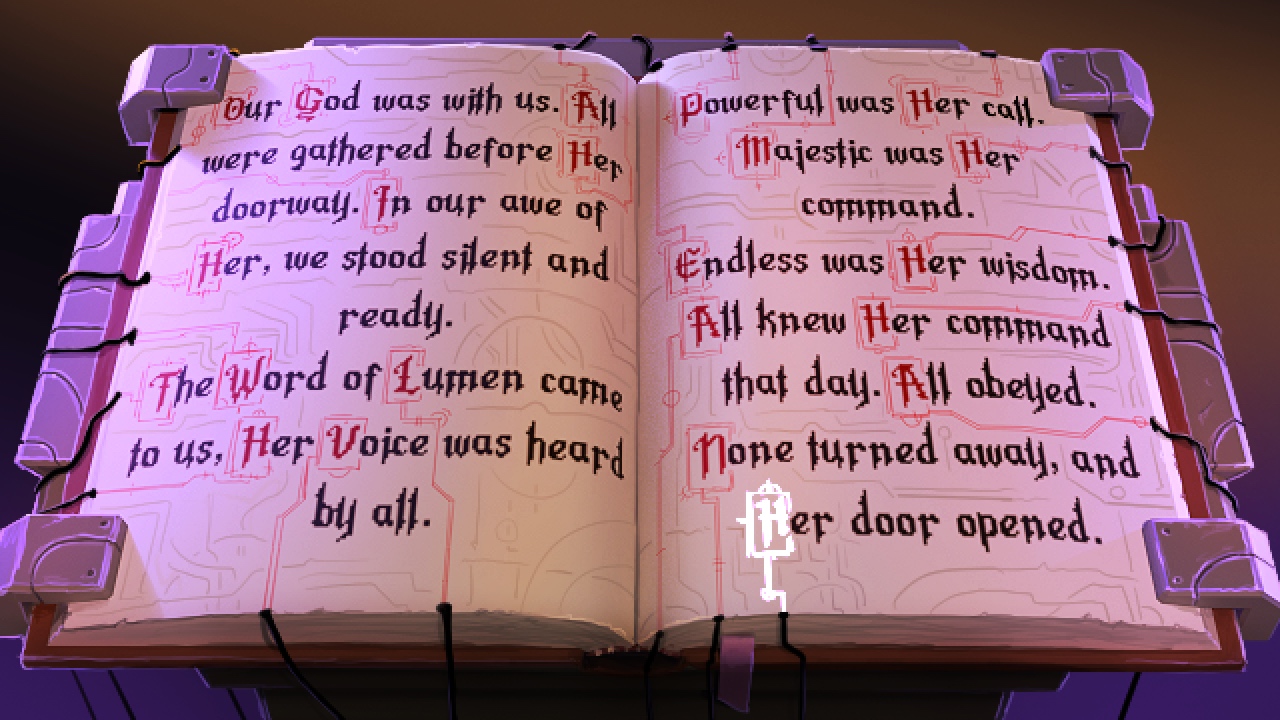 Our God was with us. All
were gathered before Her
doorway. In our awe of
Her, we stood silent and
ready.
The Word of Lumen came
to us, Her Voice was heard
by all.
Powerful was Her call.
Majestic was Her
command.
Endless was Her wisdom.
All knew Her command
that day. All obeyed.
None turned away, and
Her door opened.